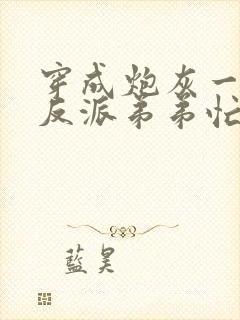 穿成炮灰一
反派弟弟忙
藍昊